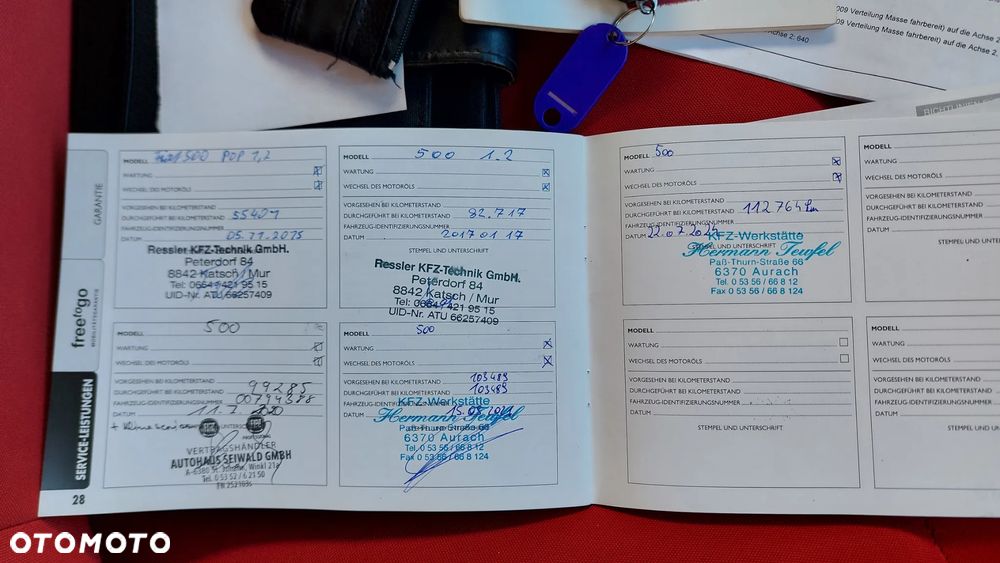 009 Verteilung Masse fahrbereit) auf die Achse 2
009 Verteilung Masse fahrbereit) auf die Achse 2,
Achse 2: 640
GARANTIE
freetogo
MOBILITÄTSGARANTIE
SERVICE-LEISTUNGEN
28
MODELL Fiat 500 POP 1,2
WARTUNG
WECHSEL DES MOTORÖLS
VORGESEHEN BEI KILOMETERSTAND
DURCHGEFÜHRT BEI KILOMETERSTAND 55401
FAHRZEUG-IDENTIFIZIERUNGSNUMMER
DATUM 05.11.2015
Ressler KFZ-Technik GmbH.
Peterdorf 84
8842 Katsch / Mur
Tel: 0664 / 421 95 15
UID-Nr. ATU 66257409
MODELL 500 1.2
WARTUNG
WECHSEL DES MOTORÖLS
VORGESEHEN BEI KILOMETERSTAND
DURCHGEFÜHRT BEI KILOMETERSTAND 82.717
FAHRZEUG-IDENTIFIZIERUNGSNUMMER
DATUM 2017 01 17
STEMPEL UND UNTERSCHRIFT
Ressler KFZ-Technik GmbH.
Peterdorf 84
8842 Katsch / Mur
Tel: 0664 / 421 95 15
UID-Nr. ATU 66257409
MODELL 500
WARTUNG
WECHSEL DES MOTORÖLS
VORGESEHEN BEI KILOMETERSTAND
DURCHGEFÜHRT BEI KILOMETERSTAND 112764 km
FAHRZEUG-IDENTIFIZIERUNGSNUMMER
DATUM 22.07.
STEMPEL UND UNTERSCHRIFT
KFZ-Werkstätte
Hermann Teufel
Paß-Thurn-Straße 66
6370 Aurach
Tel. 0 53 56 / 66 8 12
Fax 0 53 56 / 66 8 124
MODELL
WARTUNG
WECHSEL DES MOTORÖLS
VORGESEHEN BEI KILOMETERSTAND
DURCHGEFÜHRT BEI KILOMETERSTAND
FAHRZEUG-IDENTIFIZIERUNGSNUMMER
DATUM
STEMPEL
MODELL 500
WARTUNG
WECHSEL DES MOTORÖLS
VORGESEHEN BEI KILOMETERSTAND 99285
DURCHGEFÜHRT BEI KILOMETERSTAND
FAHRZEUG-IDENTIFIZIERUNGSNUMMER 00794388
DATUM 11.
VERTRAGSHÄNDLER
AUTOHAUS SEIWALD GMBH
MODELL 500
WARTUNG
WECHSEL DES MOTORÖLS
VORGESEHEN BEI KILOMETERSTAND 103489
DURCHGEFÜHRT BEI KILOMETERSTAND 103489
FAHRZEUG-IDENTIFIZIERUNGSNUMMER
DATUM 15.
KFZ-Werkstätte
Hermann Teufel
Paß-Thurn-Straße 66
6370 Aurach
Tel. 0 53 56 / 66 8 12
Fax 0 53 56 / 66 8 124
MODELL
WARTUNG
WECHSEL DES MOTORÖLS
VORGESEHEN BEI KILOMETERSTAND
DURCHGEFÜHRT BEI KILOMETERSTAND
FAHRZEUG-IDENTIFIZIERUNGSNUMMER
DATUM
STEMPEL UND UNTERSCHRIFT
MODELL
WARTUNG
WECHSEL DES MOTORÖLS
VORGESEHEN BEI KILOMETERSTAND
DURCHGEFÜHRT BEI KILOMETERSTAND
FAHRZEUG-IDENTIFIZIERUNGSNUMMER
DATUM
STEMPEL
OTOMOTO